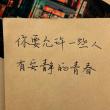 你要允许一些人
有安静的青春